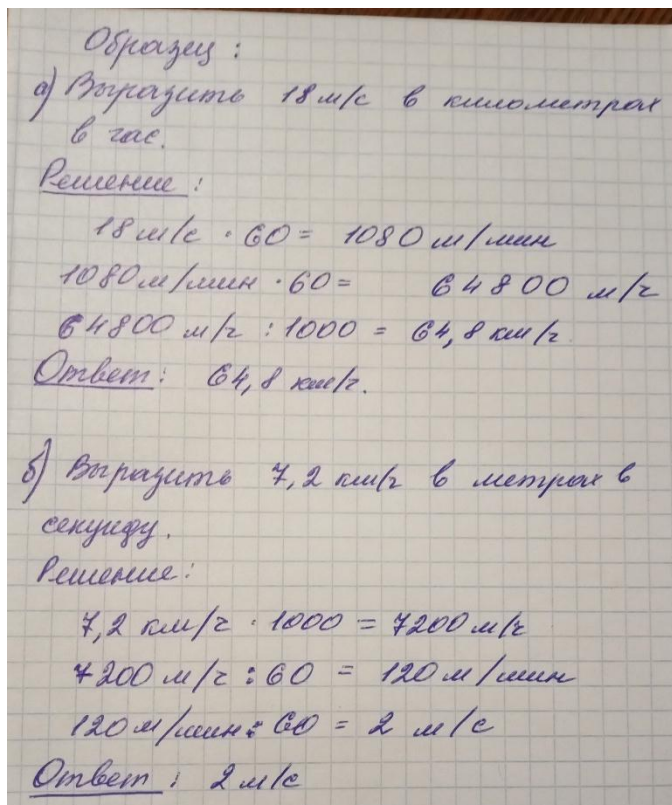 Образец:
а) Выразить 18 м/с в километрах
в час.
Решение:
18 м/с · 60 = 1080 м/мин
1080 м/мин · 60 = 64800 м/ч
64800 м/ч : 1000 = 64,8 км/ч
Ответ: 64,8 км/ч.
б) Выразить 7,2 км/ч в метрах в
секунду.
Решение:
7,2 км/ч · 1000 = 7200 м/ч
7200 м/ч : 60 = 120 м/мин
120 м/мин : 60 = 2 м/с
Ответ: 2 м/с